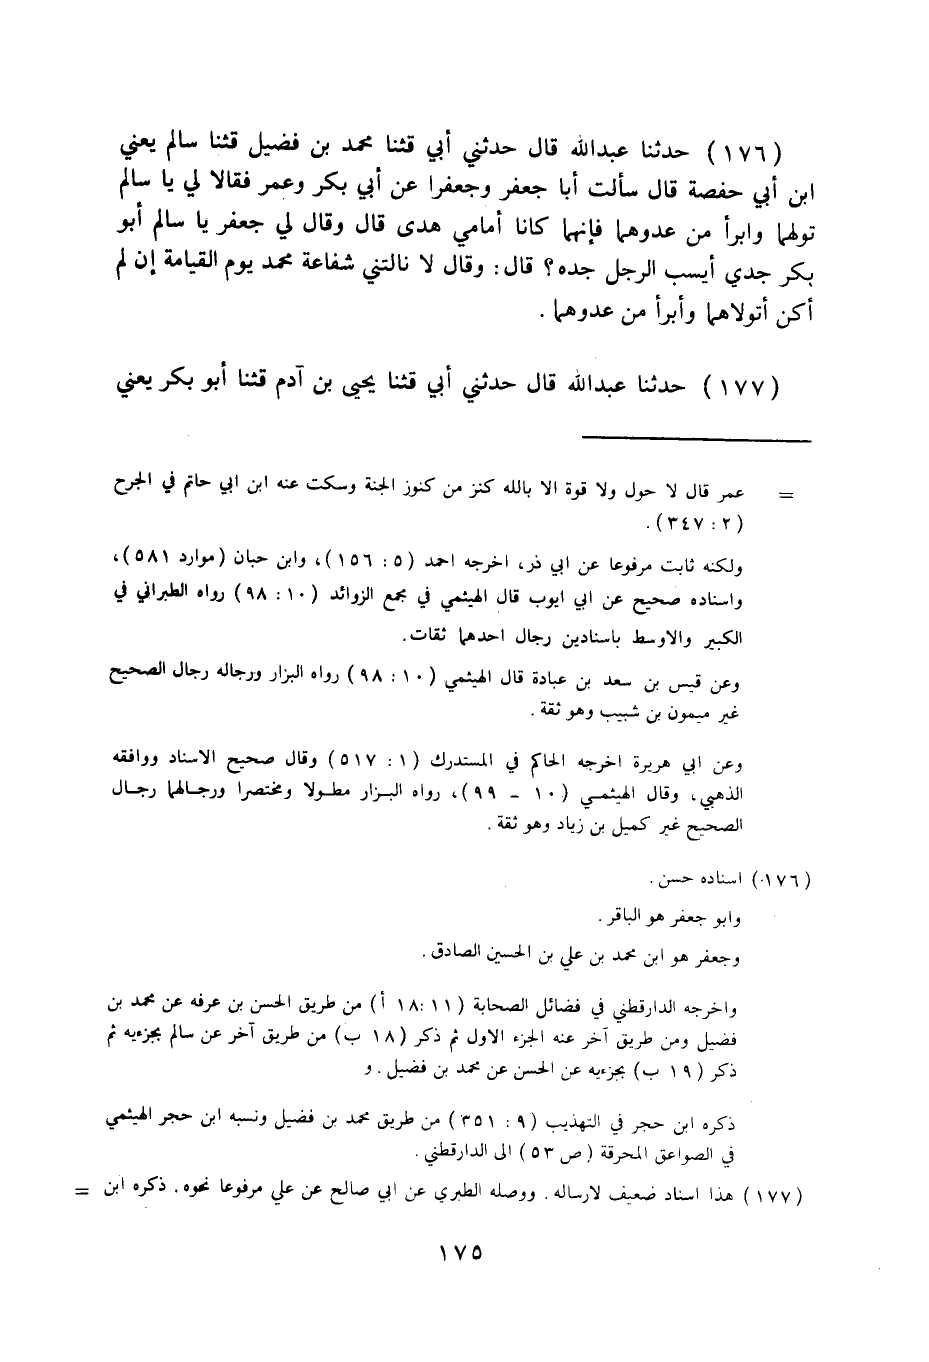 (١٧٦) حدثنا عبدالله قال حدثني أبي قثنا محمد بن فضيل قثنا سالم يعني
ابن أبي حفصة قال سألت أبا جعفر وجعفرا عن أبي بكر وعمر فقالا لي يا سالم
تولهما وابرأ من عدوهما فإنهما كانا أمامي هدى قال وقال لي جعفر يا سالم أبو
بكر جدي أيسب الرجل جده؟ قال: وقال لا نالتني شفاعة محمد يوم القيامة إن لم
أكن أتولاهما وأبرأ من عدوهما .
(١٧٧) حدثنا عبدالله قال حدثني أبي قثنا يحيى بن آدم قثنا أبو بكر يعني
= عمر قال لا حول ولا قوة الا بالله كنز من كنوز الجنة وسكت عنه ابن ابي حاتم في الجرح
(٢ : ٣٤٧) .
ولكنه ثابت مرفوعا عن ابي ذر، اخرجه احمد (٥ : ١٥٦)، وابن حبان (موارد ٥٨١)،
واسناده صحيح عن ابي ايوب قال الهيثمي في مجمع الزوائد (١٠ : ٩٨) رواه الطبراني في
الكبير والاوسط باسنادين رجال احدهما ثقات.
وعن قيس بن سعد بن عبادة قال الهيثمي (١٠ : ٩٨) رواه البزار ورجاله رجال الصحيح
غير ميمون بن شبيب وهو ثقة .
وعن ابي هريرة اخرجه الحاكم في المستدرك (١ : ٥١٧) وقال صحيح الاسناد ووافقه
الذهبي، وقال الهيثمي (١٠ - ٩٩)، رواه البزار مطولا ومختصرا ورجالهما رجال
الصحيح غير كميل بن زياد وهو ثقة .
(١٧٦) اسناده حسن .
وابو جعفر هو الباقر .
وجعفر هو ابن محمد بن علي بن الحسين الصادق .
واخرجه الدارقطني في فضائل الصحابة (١١ :١٨ أ) من طريق الحسن بن عرفه عن محمد بن
فضيل ومن طريق آخر عنه الجزء الاول ثم ذكر (١٨ ب) من طريق آخر عن سالم بجزءيه ثم
ذكر (١٩ ب) بجزءيه عن الحسن عن محمد بن فضيل . و
ذكره ابن حجر في التهذيب (٩ : ٣٥١) من طريق محمد بن فضيل ونسبه ابن حجر الهيثمي
في الصواعق المحرقة (ص ٥٣) الى الدارقطني .
(١٧٧) هذا اسناد ضعيف لارساله. ووصله الطبري عن ابي صالح عن علي مرفوعا نحوه. ذكره ابن =
١٧٥